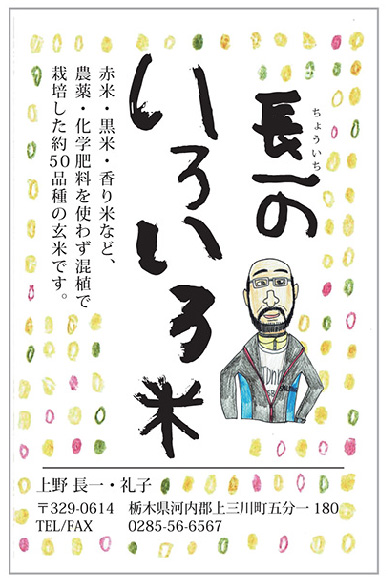 長一の
ちょういち
いろいろ米
赤米・黒米・香り米など、
農薬・化学肥料を使わず混植で
栽培した約50品種の玄米です。
上野 長一・礼子
〒329-0614 栃木県河内郡上三川町五分一 180
TEL/FAX 0285-56-6567